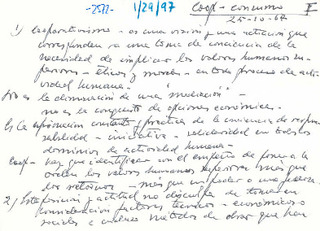 -2572- 1/29/97 Coop - consumo I
25-10-67
1) Cooperativismo - es una visión y una actuación que
corresponden a una toma de conciencia de la
necesidad de implicar los valores humanos su-
periores - éticos y morales - en todo proceso de acti-
vidad humana.
No es la dimanación de una "mediación" -
no es la conquista de opciones económicas.
Es la afirmación constante / práctica de la conciencia de respon-
sabilidad - iniciativa - solidaridad en todos los
dominios de actividad humana -
Coop - hay que identificar con el empeño de poner en
orden los valores humanos superiores más que
los retóricos - más que
2) Esta posición y actitud no disculpa de tomar en
consideración factores técnicos - económicos
sociales e incluso métodos de obrar que han